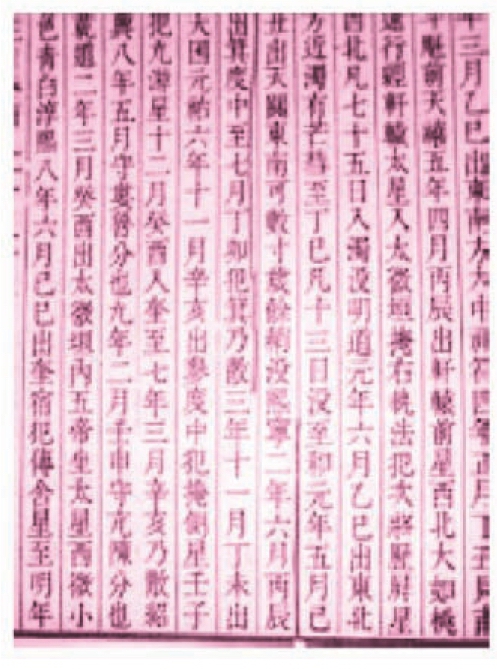 年三月乙巳出東南方大中祥符四年正月丁丑見南
斗魁前天禧五年四月丙辰出軒轅前星西北大如桃
速行經軒轅太星入太微垣掩右執法犯次將歷屏星
西北凡七十五日入濁沒明道元年六月乙巳出東北
方近濁有芒彗至丁巳凡十三日沒至和元年五月己
丑出天關東南可數寸歲餘稍沒熙寧二年六月丙辰
出箕度中至七月丁卯犯箕乃散三年十一月丁未出
天囷元祐六年十一月辛亥出參度中犯掩側星壬子
犯九游星十二月癸酉入奎至七年三月辛亥乃散紹
興八年五月守婁魯分也九年二月壬申守亢陳分也
乾道二年三月癸酉出太微垣內五帝坐太星西微小
色青白淳熙八年六月己巳出奎宿犯傳舍星至明年